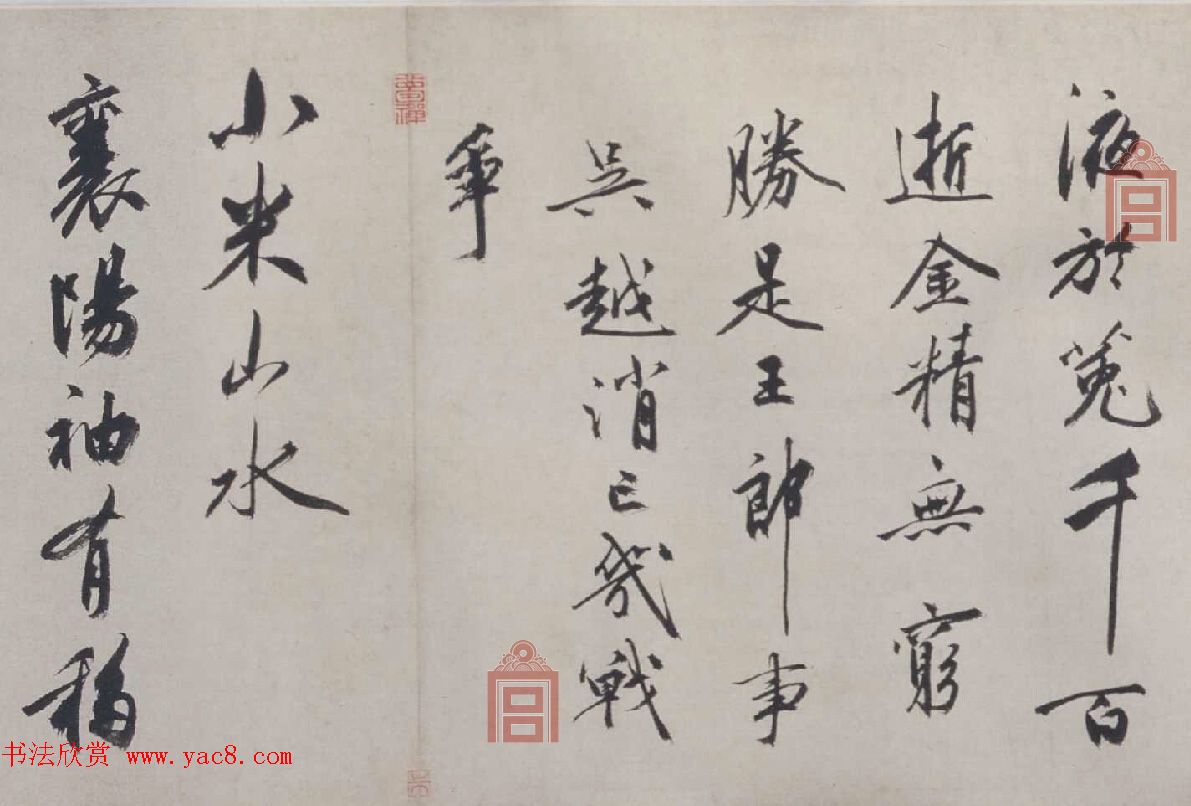 液於菟千百
逝金精無窮
勝是王郎事
吳越消亡幾戰
爭
小米山水
襄陽袖有移
书法欣赏 www.yac8.com